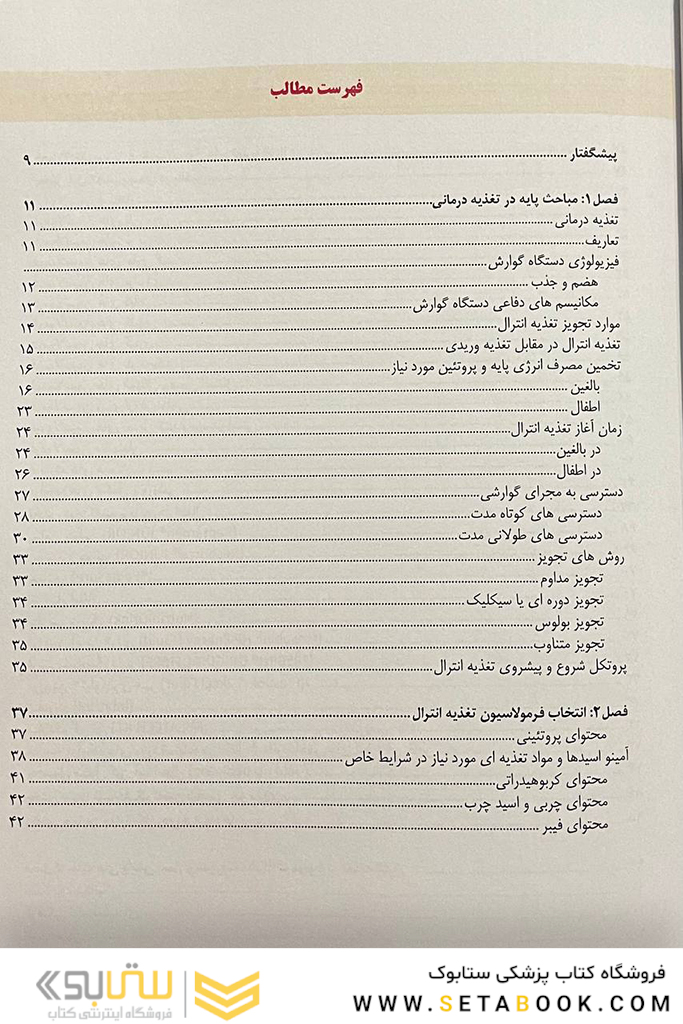 فهرست مطالب
پیشگفتار ........ ۹
فصل ۱: مباحث پایه در تغذیه درمانی ........ ۱۱
تغذیه درمانی ........ ۱۱
تعاریف ........ ۱۱
فیزیولوژی دستگاه گوارش ........
هضم و جذب ........ ۱۲
مکانیسم های دفاعی دستگاه گوارش ........ ۱۳
موارد تجویز تغذیه انترال ........ ۱۴
تغذیه انترال در مقابل تغذیه وریدی ........ ۱۵
تخمین مصرف انرژی پایه و پروتئین مورد نیاز ........ ۱۶
بالغین ........ ۱۶
اطفال ........ ۲۳
زمان آغاز تغذیه انترال ........ ۲۴
در بالغین ........ ۲۴
در اطفال ........ ۲۶
دسترسی به مجرای گوارشی ........ ۲۷
دسترسی های کوتاه مدت ........ ۲۸
دسترسی های طولانی مدت ........ ۳۰
روش های تجویز ........ ۳۳
تجویز مداوم ........ ۳۳
تجویز دوره ای یا سیکلیک ........ ۳۴
تجویز بولوس ........ ۳۴
تجویز متناوب ........ ۳۵
پروتکل شروع و پیشروی تغذیه انترال ........ ۳۵
فصل ۲: انتخاب فرمولاسیون تغذیه انترال ........ ۳۷
محتوای پروتئینی ........ ۳۷
آمینو اسیدها و مواد تغذیه ای مورد نیاز در شرایط خاص ........ ۳۸
محتوای کربوهیدراتی ........ ۴۱
محتوای چربی و اسید چرب ........ ۴۲
محتوای فیبر ........ ۴۲
فروشگاه کتاب پزشکی ستابوک
WWW.SETABOOK.COM
ستابوک
فروشگاه اینترنتی کتاب